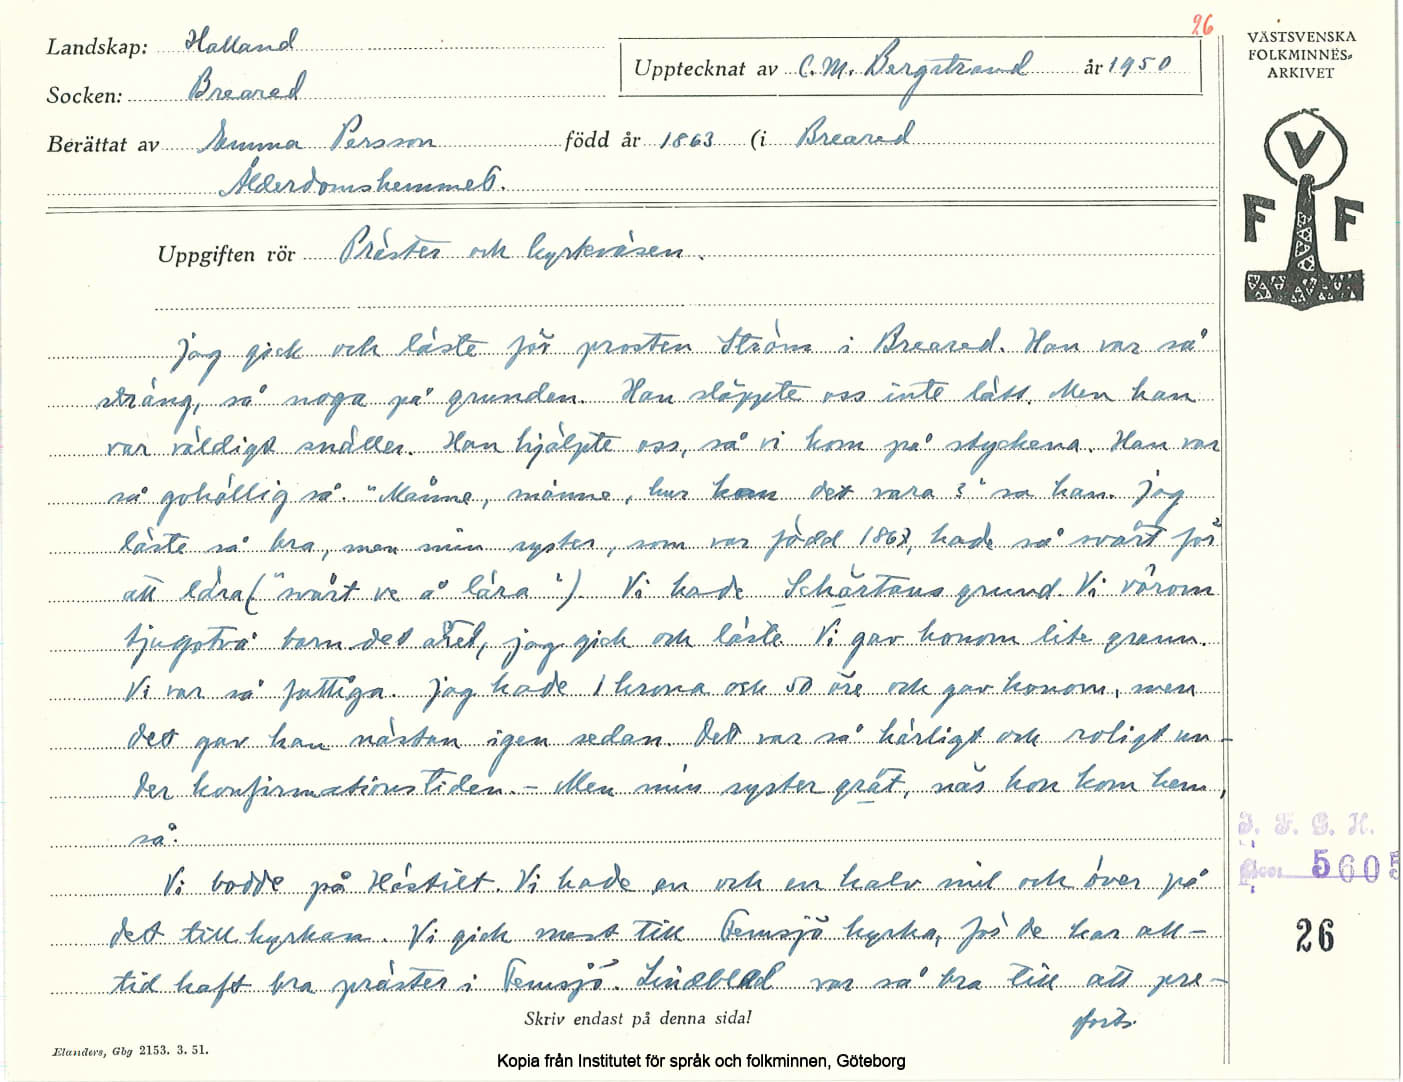 26
Landskap: Halland
Upptecknat av C. M. Bergstrand år 1950
Socken: Breared
Berättat av Emma Persson född år 1863 (i Breared
Ålderdomshemmet.
VÄSTSVENSKA
FOLKMINNES-
ARKIVET
V
F F
Uppgiften rör Präster och kyrkväsen.
Jag gick och läste för prosten Ström i Breared. Han var så
sträng, så noga på grunden. Han släppte oss inte lätt. Men han
var väldigt snäller. Han hjälpte oss, så vi kom på styckena. Han var
så gohällig så. "Månne, månne, hur kan det vara?" sa han. Jag
läste så bra, men min syster, som var född 1868, hade så svårt för
att lära ("svårt ve å lära"). Vi hade Schärtaus grund. Vi vårom
tjugotvå barn det året, jag gick och läste. Vi gav honom lite grann.
Vi var så fattiga. Jag hade 1 krona och 50 öre och gav honom, men
det gav han nästan igen sedan. Det var så härligt och roligt un-
der konfirmationstiden. – Men min syster grät, när hon kom hem,
så.
Vi bodde på Hästilt. Vi hade en och en halv mil och över på
det till kyrkan. Vi gick mest till Femsjö kyrka, för de har all-
tid haft bra präster i Femsjö. Lindblad var så bra till att pre-
forts.
I. F. G. H.
Acc. 5605
26
Skriv endast på denna sida!
Elanders, Gbg 2153. 3. 51.
Kopia från Institutet för språk och folkminnen, Göteborg